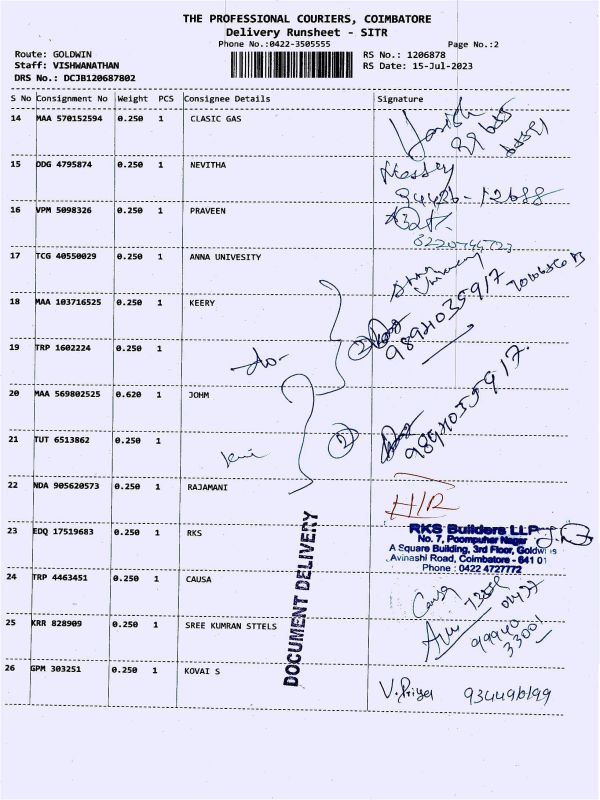 THE PROFESSIONAL COURIERS, COIMBATORE
Delivery Runsheet - SITR
Phone No.:0422-3505555
Page No.:2
Route: GOLDWIN
RS No.: 1206878
Staff: VISHWANATHAN
RS Date: 15-Jul-2023
DRS No.: DCJB120687802
S No Consignment No Weight PCS Consignee Details Signature
14 MAA 570152594 0.250 1 CLASIC GAS
15 DDG 4795874 0.250 1 NEVITHA
16 VPM 5098326 0.250 1 PRAVEEN
17 TCG 40550029 0.250 1 ANNA UNIVESITY
18 MAA 103716525 0.250 1 KEERY
19 TRP 1602224 0.250 1
20 MAA 569802525 0.620 1 JOHM
21 TUT 6513862 0.250 1
22 NDA 905620573 0.250 1 RAJAMANI
H/R
23 EDQ 17519683 0.250 1 RKS
RKS Builders LLP
No. 7, Poompuhar Nagar
A Square Building, 3rd Floor, Goldwins
Avinashi Road, Coimbatore - 641 01
Phone : 0422 4727772
24 TRP 4463451 0.250 1 CAUSA
Causa
25 KRR 828909 0.250 1 SREE KUMRAN STTELS
99940
33001
26 GPM 303251 0.250 1 KOVAI S
V. Priya
DOCUMENT DELIVERY